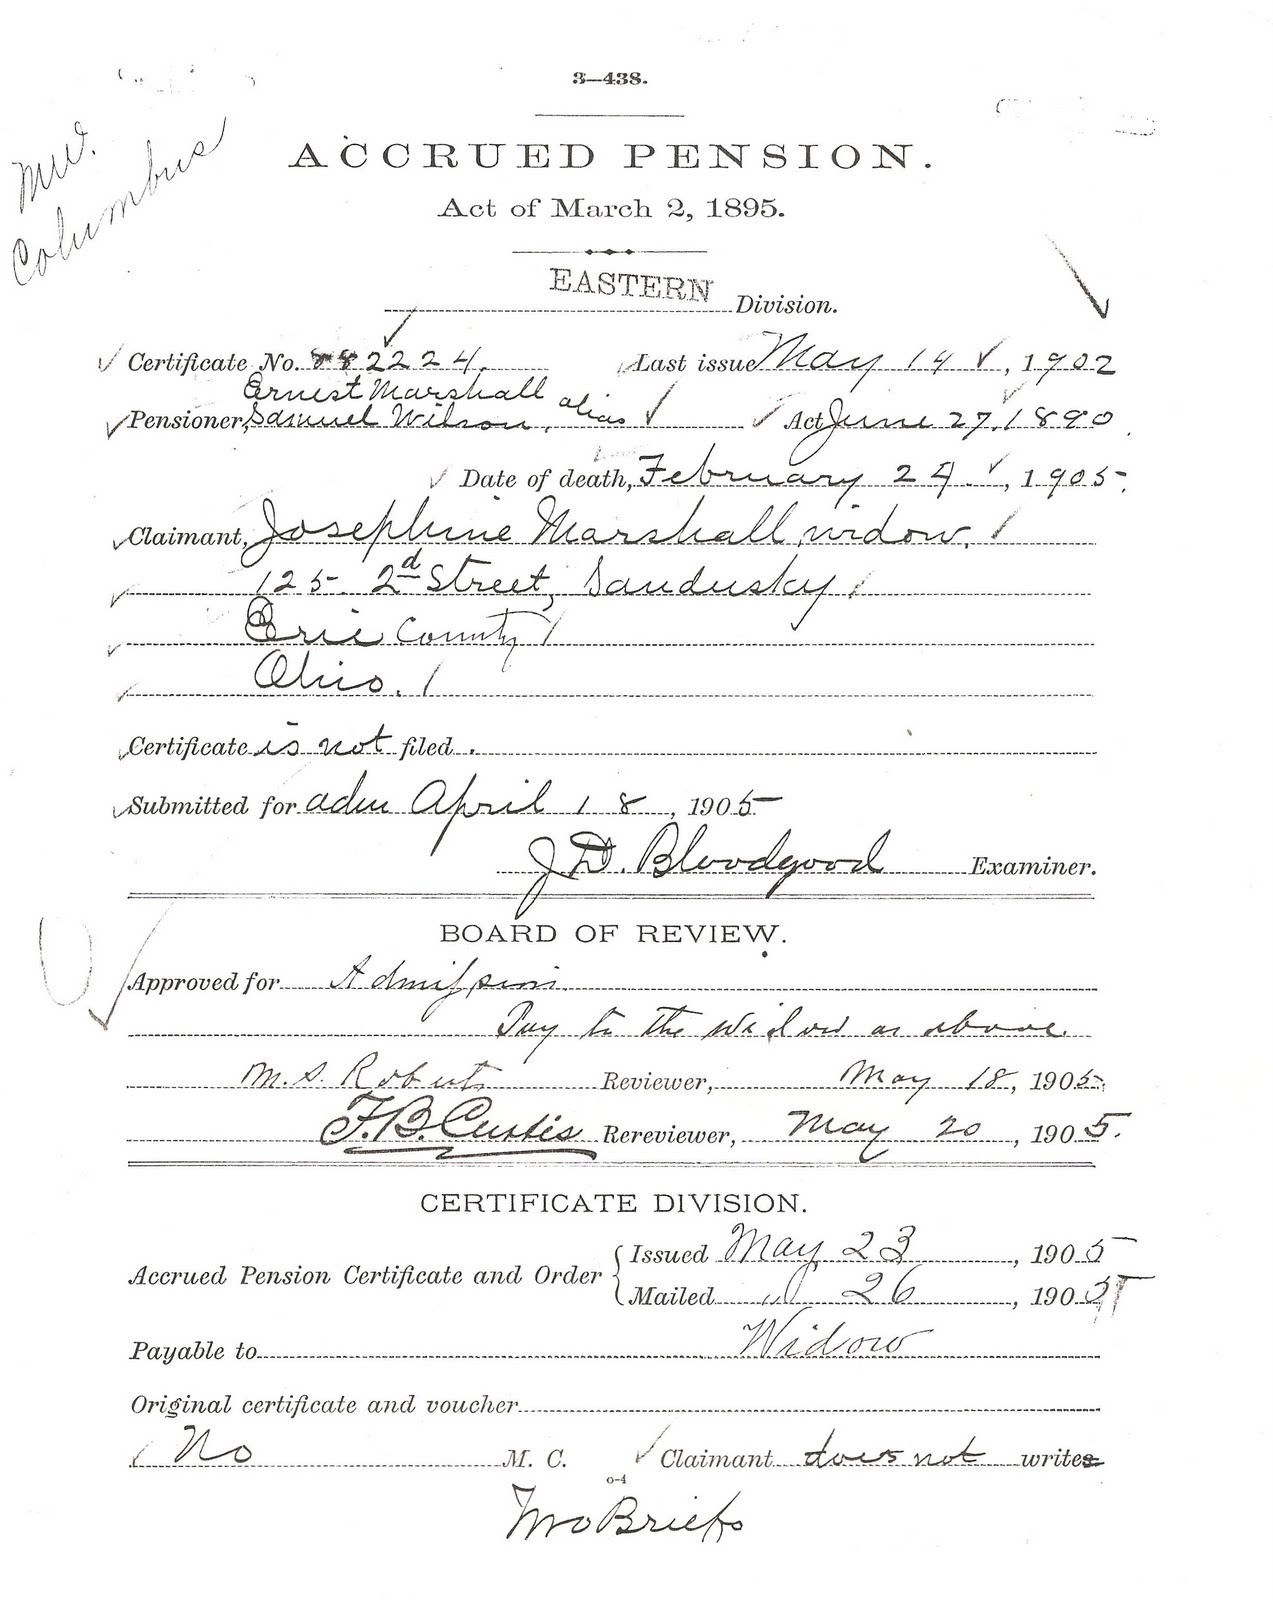 3—438.
Columbus
ACCRUED PENSION.
Act of March 2, 1895.
EASTERN Division.
Certificate No. 882224. Last issue May 14, 1902
Ernest Marshall alias
Pensioner, Samuel Wilson, Act June 27, 1890
Date of death, February 24, 1905.
Claimant, Josephine Marshall, widow.
125 2d Street, Sandusky
Erie County
Ohio.
Certificate is not filed.
Submitted for adm April 18, 1905
J.D. Bloodgood Examiner.
BOARD OF REVIEW.
Approved for Admission
Pay to the widow as above.
M.S. Roberts Reviewer, May 18, 1905.
F.B. Curtis Rereviewer, May 20, 1905.
CERTIFICATE DIVISION.
Accrued Pension Certificate and Order
Issued May 23, 1905
Mailed " 26, 1905
Payable to Widow
Original certificate and voucher
No M. C. Claimant does not write
o-4
Two Briefs